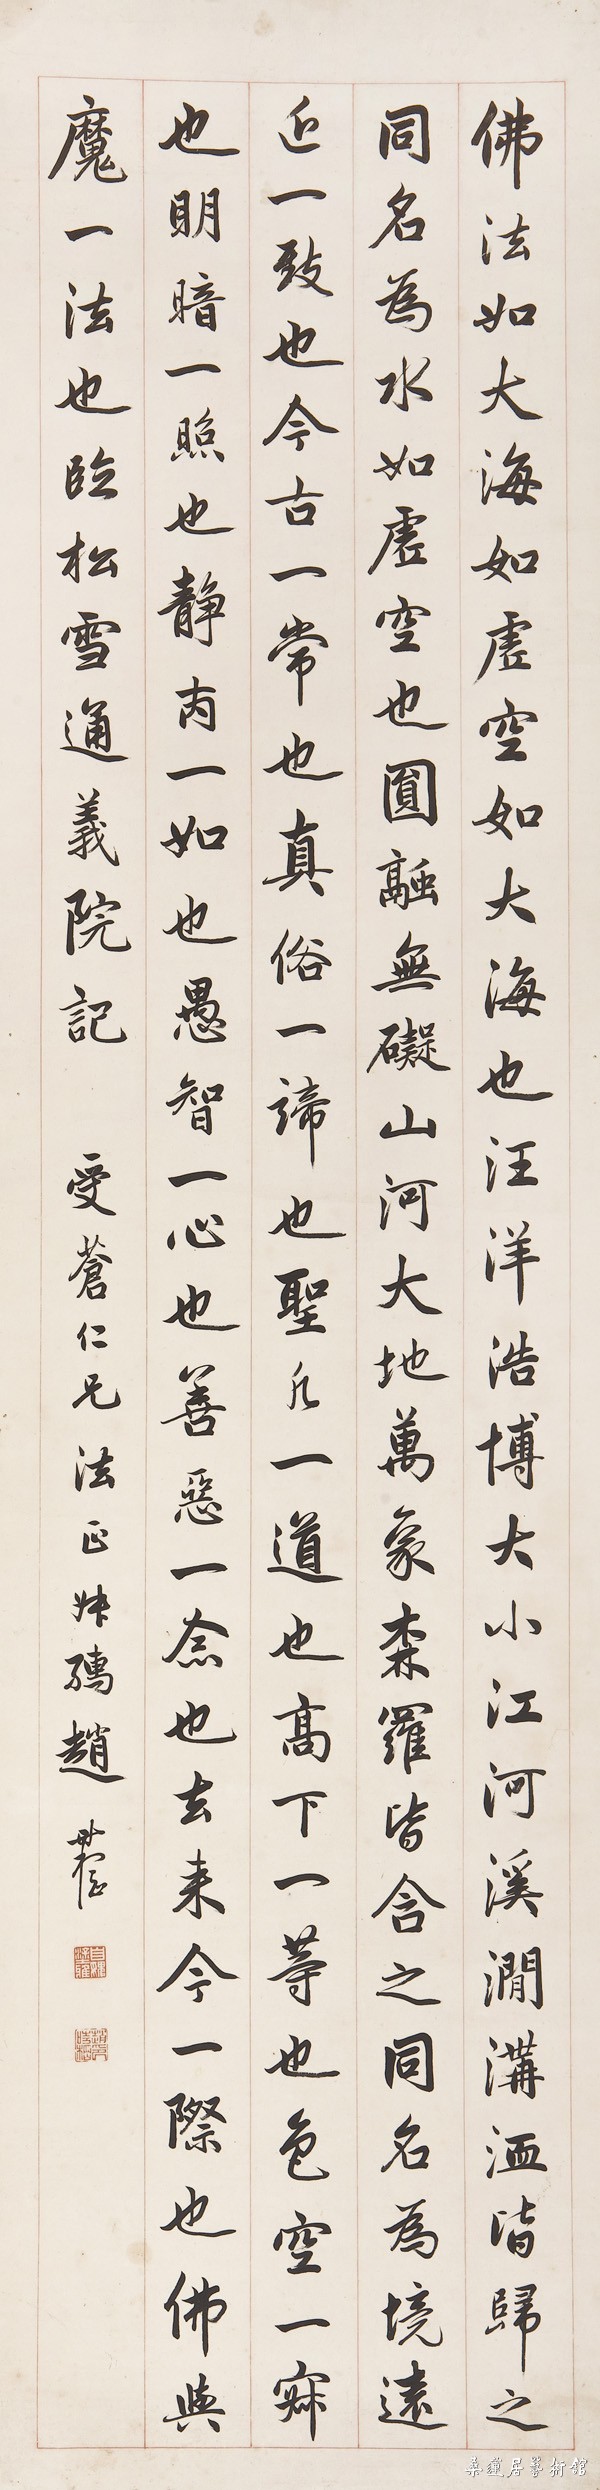 佛法如大海如虛空如大海也汪洋浩博大小江河溪澗溝洫皆歸之
同名為水如虛空也圓融無礙山河大地萬象森羅皆含之同名為境遠
近一致也今古一常也真俗一諦也聖凡一道也高下一等也色空一寂
也明暗一照也靜丙一如也愚智一心也善惡一念也去來今一際也佛與
魔一法也臨松雪通義院記
受蒼仁兄法正妹鴻趙
桑蓮居藝術館